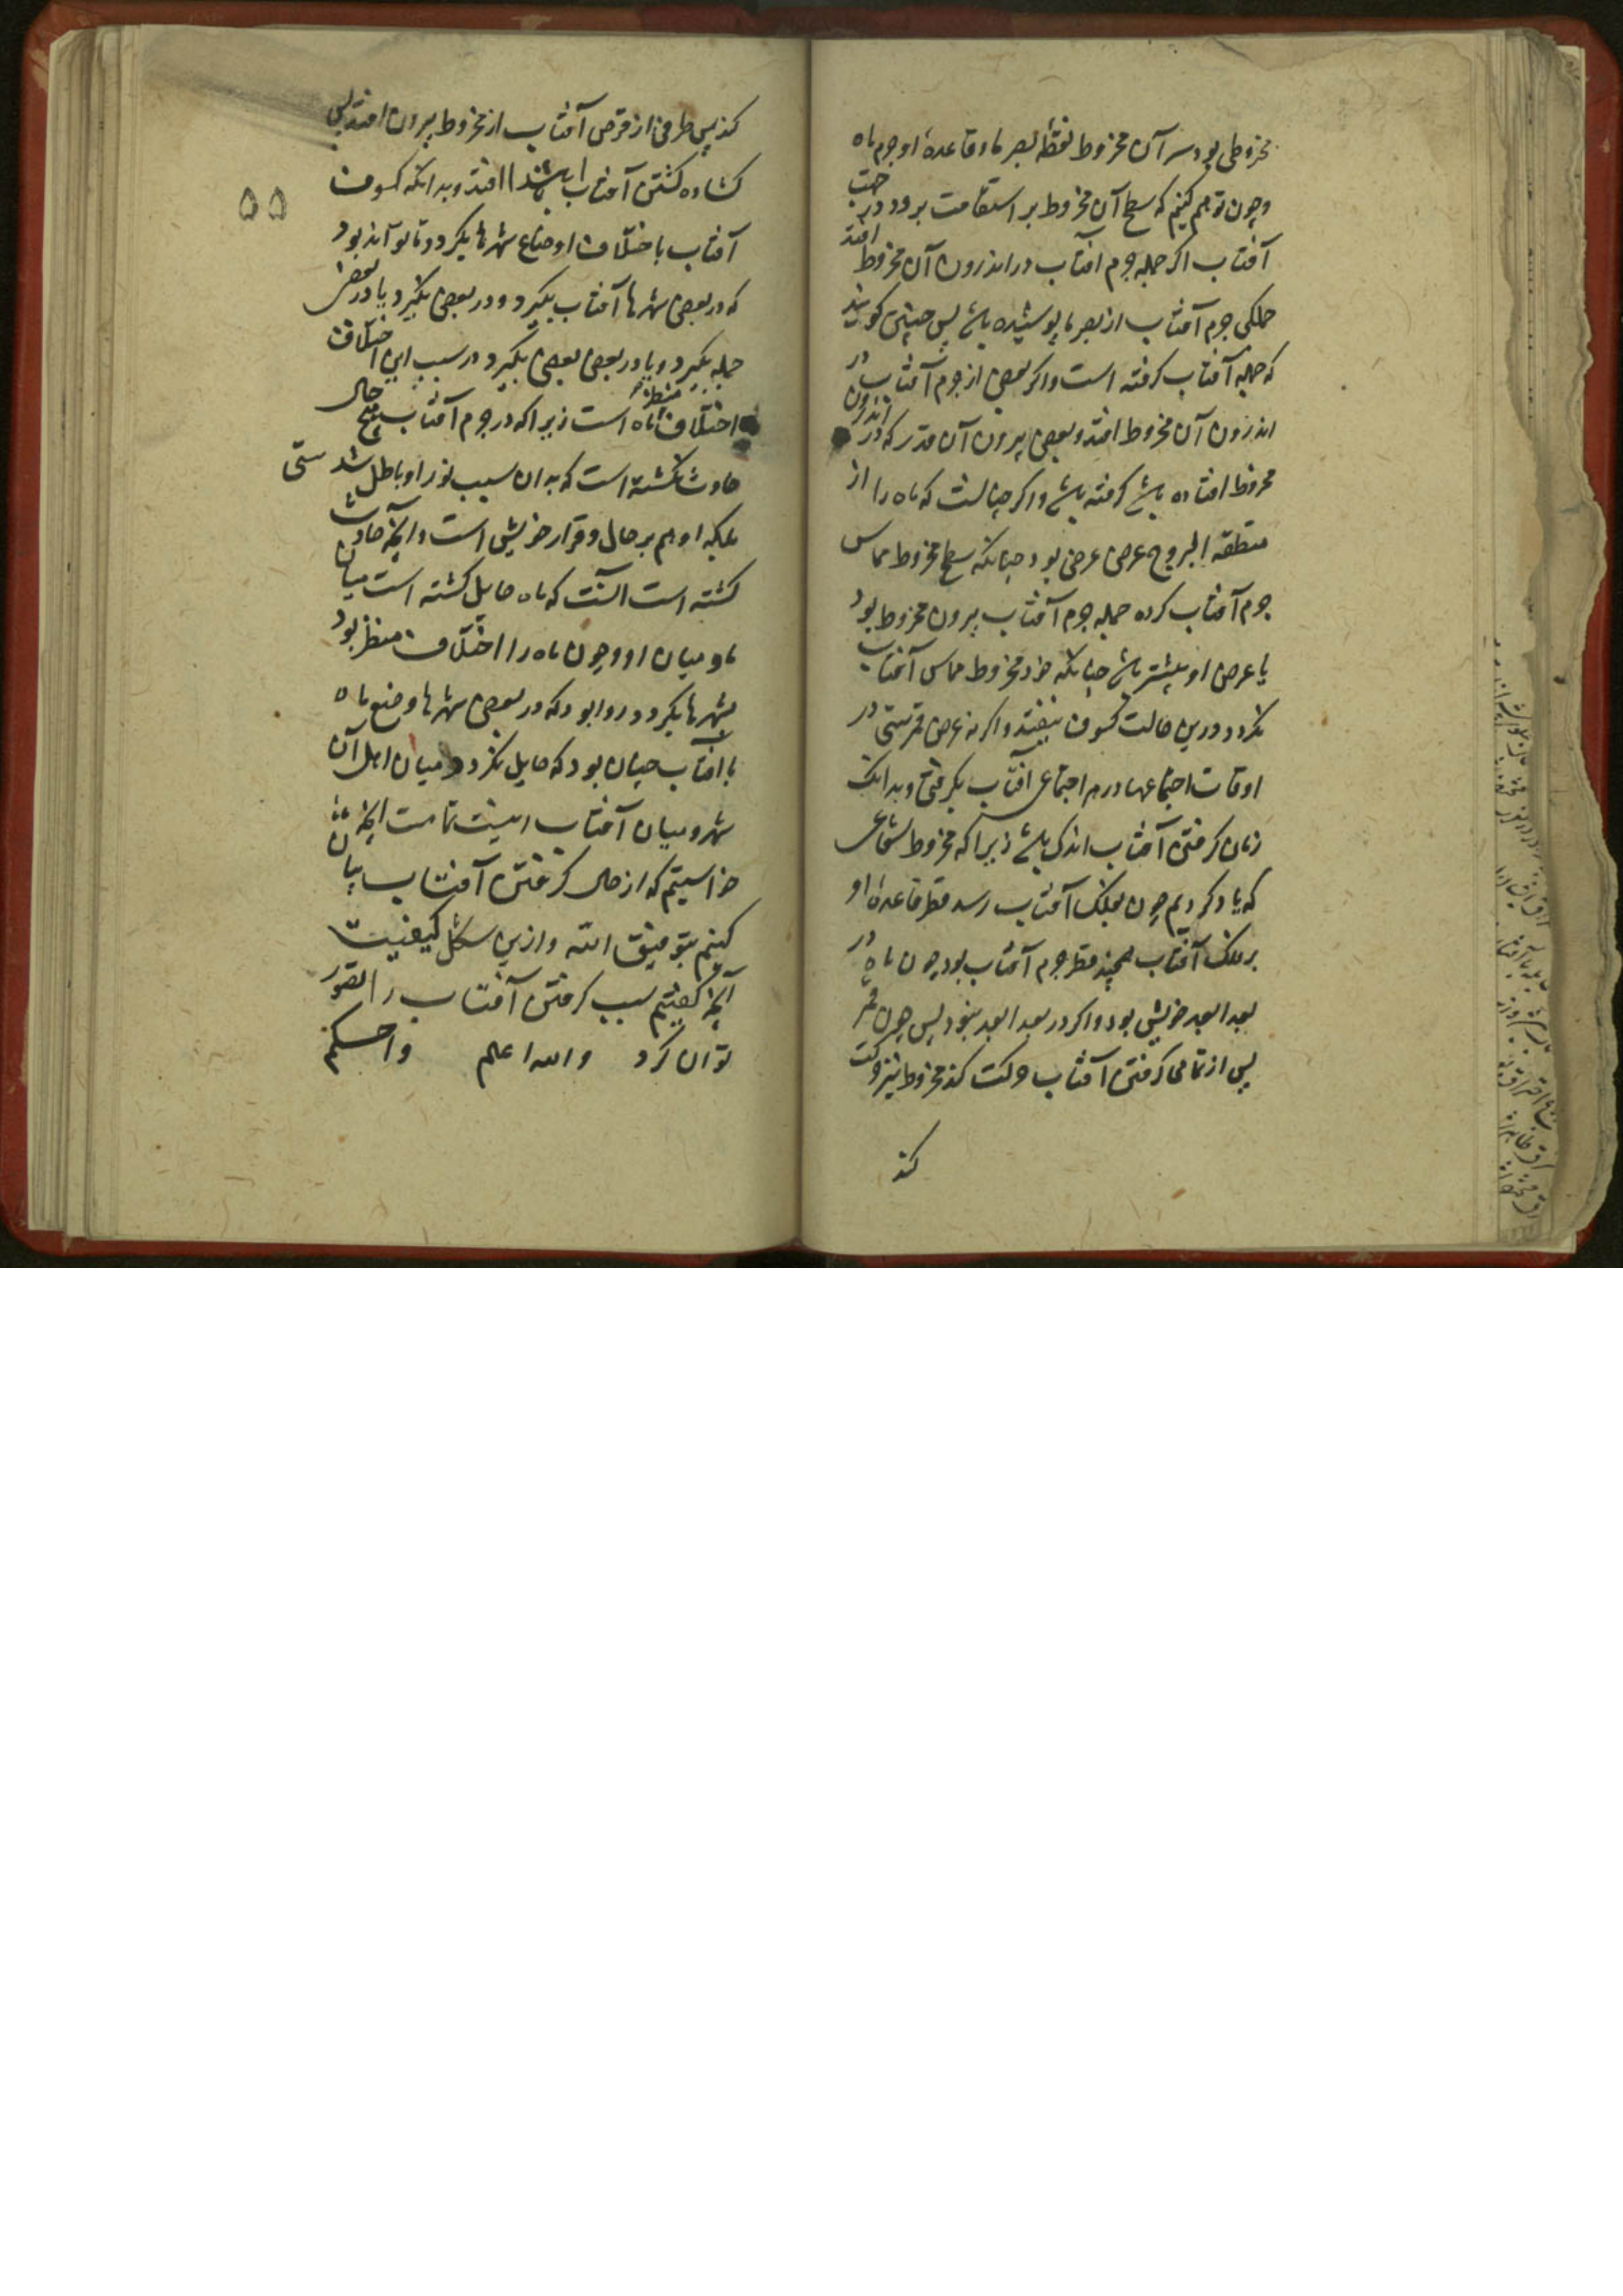 مخروطی بود سر آن مخروط نقطهٔ بصر ما و قاعدهٔ او جرم ماه
وچون توهم کنیم که سطح آن مخروط بر استقامت برود در جهت
آفتاب اکر جمله جرم آفتاب در اندرون آن مخروط افتد
جملکی جرم آفتاب از بصر ما پوشیده باشد پس چنین کویند
که جمله آفتاب کرفته است واکر بعضی از جرم آفتاب در
اندرون آن مخروط افتد وبعضی بیرون آن قدر که در اندرون
مخروط افتاده باشد کرفته باشد واکر چنانست که ماه را از
منطقه البروج عرض عرضی بود چنانکه سطح مخروط مماس
جرم آفتاب کرده جمله جرم آفتاب بیرون مخروط بود
یا عرض او بیشتر باشد چنانکه خود مخروط مماس آفتاب
نکردد ودرین حالت کسوف نیفتد واکر نه عرض قمرستی در
اوقات اجتماعها در هر اجتماعی آفتاب بکرفتی وبدانک
زمان کرفتن آفتاب اندک باشد زیرا که مخروط شعاعی
که یاد کردیم چون بفلک آفتاب رسد قطر قاعدهٔ او
بر فلک آفتاب همچند قطر جرم آفتاب بود چون ماه در
بعد ابعد خویش بود واکر در بعد ابعد نبود پس چون قمر
پس از تمامی کرفتن آفتاب حرکت کند مخروط نیز حرکت
کند
کند پس طرفی از قرص آفتاب از مخروط بیرون افتد پس
کشاده کشتن آفتاب ابتدا افتد وبدانکه کسوف
۵۵
آفتاب باختلاف اوضاع شهرها بکردد وتا تواند بود
که در بعضی شهرها آفتاب بکیرد ودر بعضی نکیرد یا در بعضی
جمله بکیرد ویا در بعضی بعضی بکیرد ودر سبب این اختلاف
اختلاف منظر ماه است زیرا که در جرم آفتاب هیچ حال
حادث نکشته است که به ان سبب نور او باطل شدستی
بلکه او هم بر حال وقرار خویش است وآنچه حادث
کشته است آنست که ماه حایل کشته است میان
ما ومیان او وچون ماه را اختلاف منظر بود
بشهرها بکردد روا بود که در بعضی شهرها وضع ماه
با آفتاب چنان بود که حایل نکردد میان اهل آن
شهر ومیان آفتاب اینست تمامت آنچه ما
خواستیم که از حال کرفتن آفتاب بیان
کنیم بتوفیق الله وازین شکل کیفیت
آنچه کفتیم سبب کرفتن آفتاب را تصور
توان کرد والله اعلم واحکم